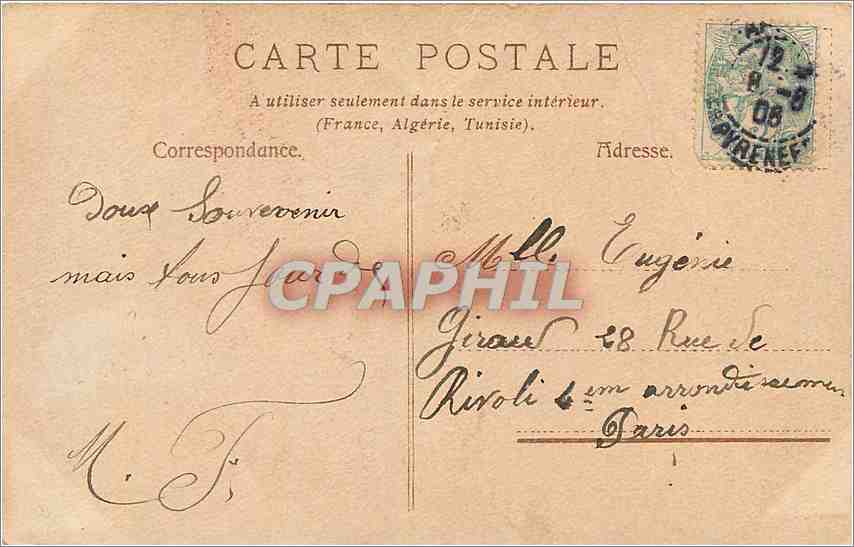 CARTE POSTALE
A utiliser seulement dans le service intérieur.
(France, Algérie, Tunisie).
Correspondance.
Adresse.
12
8 - 8
08
PYRENEES
Doux Souvevenir
mais tous Jour de
M. F.
Mlle. Eugénie
Giraud 28 Rue de
Rivoli 4em arrondissemen
Paris
CPAPHIL